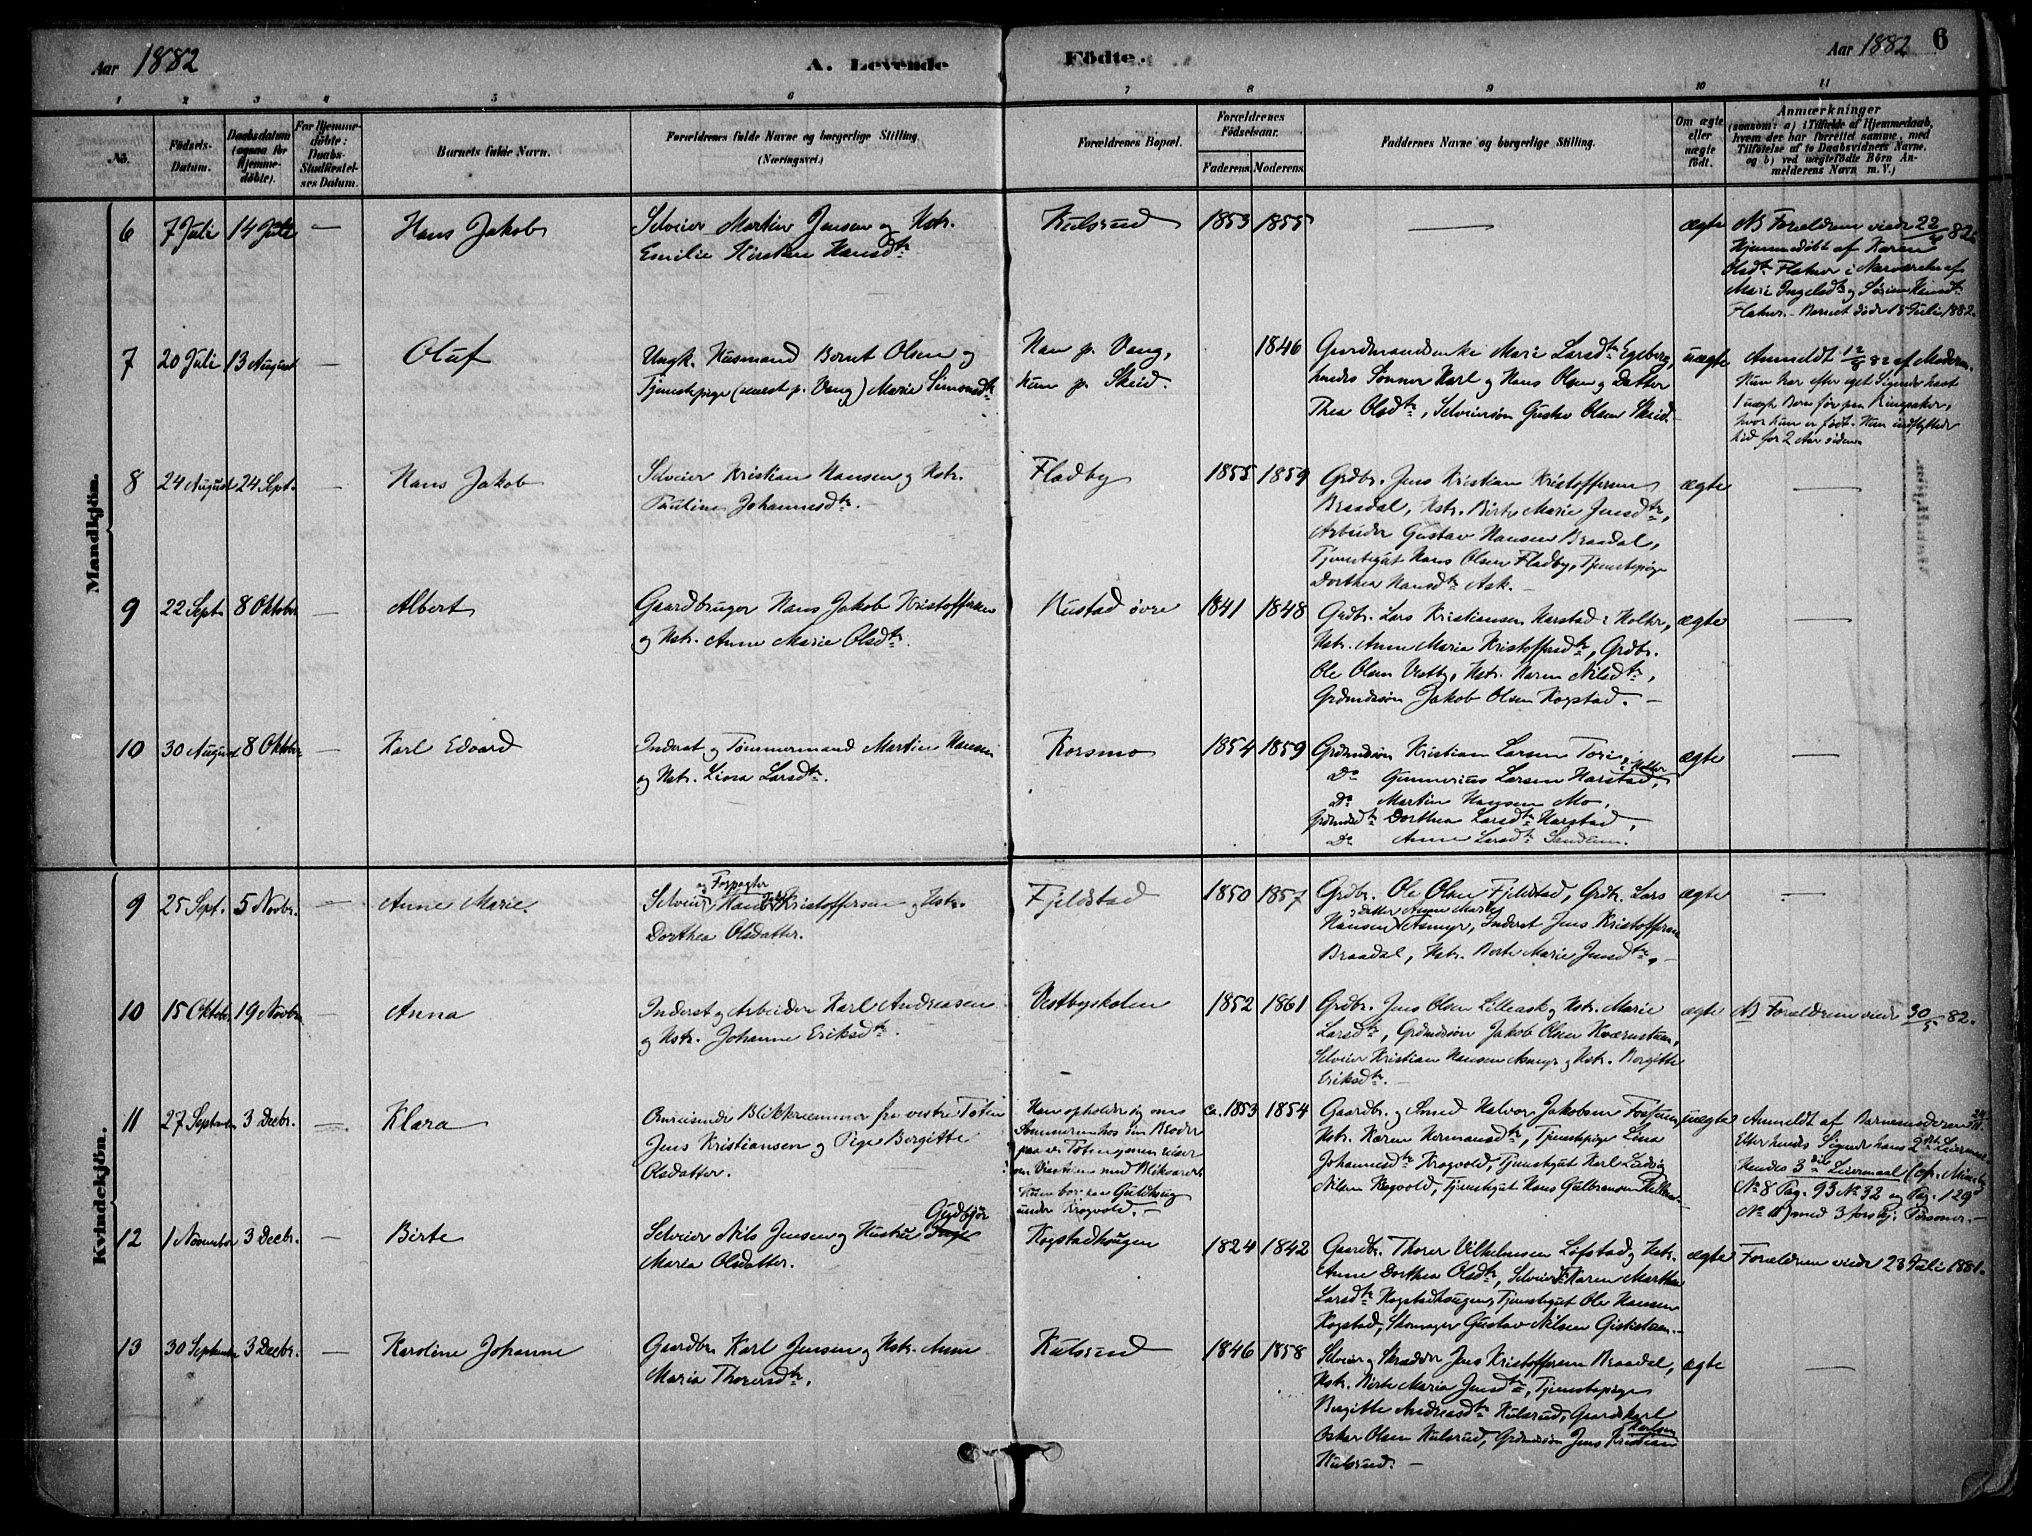 Aar 1882
A. Levende
Födte.
Aar 1882
6
1 2 3 4 5 6 7 8 9 10 11
No.
Födsels-
Datum.
Daabsdatum
(ogsaa for
Hjemme-
döbte).
For Hjemme-
döbte:
Daabs-
Stadfæstel-
ses Datum.
Barnets fulde Navn.
Forældrenes fulde Navne og borgerlige Stilling.
(Næringsvei.)
Forældrenes Bopæl.
Forældrenes
Födselsaar.
Faderens. Moderens.
Faddernes Navne og borgerlige Stilling.
Om ægte
eller
uægte
födt.
Anmærkninger
(saasom: a) i Tilfælde af Hjemmedaab,
hvem der har forrettet samme, med
Tilföielse af to Daabsvidners Navne,
og b) ved uægtefödte Börn An-
melderens Navn m. V.)
Mandkjön.
6
7 Juli
14 Juli
—
Hans Jakob
Selveier Martin Jensen og Kstr.
Emilie Kirstine Hansdtr
Kulsrud
1853
1855
—
ægte
NB Forældrene viede 22/4 82.
Hjemmedøbt af Karen
Olsdtr Flatner i Nærværelse af
Mari Ingelsdtr og
Flatner. – Barnet døde 15 Juli 1882.
7
20 Juli
13 August
Oluf
Ungk. Husmand Bernt Olsen og
Tjenestepige (næst p. Vang) Marie Simensdtr
Han p. Vang,
hun p. Skeid.
1846
Gaardmandsenke Mari Larsdtr Egeberg,
hendes Sønner Karl og Hans Olsen og Datter
Thea Olsdtr, Selveiersøn Gustav Olsen Skeid
uægte
Anmeldt 12/8 82 af Moderen.
Hun har efter eget Sigende havt
1 uægte Barn før paa Ringsaker,
hvor hun er født. Hun indflyttede
hid for 2 Aar siden.
8
24 August
24 Sept.
—
Hans Jakob
Selveier Kristian Hansen og Kstr.
Pauline Johannesdtr. –
Fladby
1855
1859
Grdbr. Jens Kristian Kristoffersen
Braadal, Kstr. Birte Marie Jensdtr,
Arbeider Gustav Hansen Braadal,
Tjenestegut Hans Olsen Fladby, Tjenestepige
Dorthea Hansdtr Ask. –
ægte
—
9
22 Sept
8 Oktober
—
Albert
Gaardbruger Hans Jakob Kristoffersen
og Kstr. Anne Marie Olsdtr.
Hustad øvre
1841
1848
Grdbr. Lars Kristiansen Harstad i Holter,
Kstr. Anne Maria Kristoffersdtr, Grdbr.
Ole Olsen Vestby, Kstr. Karen Nilsdtr,
Grdmdssøn Jakob Olsen Kogstad. –
ægte
—
10
30 August
8 Oktober
—
Karl Edvard
Inderst og Tømmermand Martin Hansen
og Kstr. Lina Larsdtr.
Korsmo
1854
1859
Grdmdssøn Kristian Larsen
Do Gunnerius Larsen Harstad i Holter,
Do Martin Hansen Mo,
Grdmdsdtr Dorthea Larsdtr Harstad,
Do Anne Larsdtr
ægte
—
Kvindekjön.
9
25 Sept.
5 Novbr.
—
Anne Marie.
Selveier og Forpagter Hans Kristoffersen og Kstr.
Dorthea Olsdatter.
Fjeldstad
1850
1857
Grdbr. Ole Olsen Fjeldstad, Grdbr. Lars
Hansen og Datter Anne Marie Asmyr, Inderst Jens Kristoffersen
Braadal, Kstr. Berte Marie Jensdtr. –
ægte
—
10
15 Oktober
19 Novbr
—
Anna
Inderst og Arbeider Karl Andreasen
og Kstr. Johanne Eriksdtr.
Vestbyskolen
1852
1861
Grdbr. Jens Olsen Lilleask og Kstr. Marie
Larsdtr, Grdmdssøn Jakob Olsen Kværnstuen,
Selveier Kristian Hansen Asmyr og Kstr. Borgitte
Eriksdtr. –
ægte
NB Forældrene viede 30/5 82.
11
27 Septmbr
3 Decbr.
—
Klara
Omreisende Blikkræmmer fra vestre Toten
Jens Kristiansen og Pige Borgitte
Olsdatter.
Han opholder sig om
Sommeren hos sin Broder
paa v. Toten, men reiser
om Vinteren med Blikvarer.
Hun bor paa Guldhaug
under Krogvold. –
ca. 1853
1854
Gaardbr. og Smed Halvor Jakobsen
Kstr. Karen Hermansdtr, Tjenestepige Lina
Johannesdtr Krogvold, Tjenestegut Karl Ludvig
Nilsen Kogvold, Tjenestegut Hans Gulbransen
uægte
Anmeldt af Barnemoderen
Efter hendes Sigende hans 2det Leiermaal
Hendes 3die Leiermaal (cfr. Minb.
No 8 Pag. 93 No 32 og Pag. 129
No 11) med 3 forskj. Personer. –
12
1 November
3 Decbr.
—
Birte
Selveier Nils Jensen og Hustru Gudbjør
Maria Olsdatter.
Kogstadhaugen
1824
1842
Gaardbr. Thorer Vilhelmsen Løfstad og Kstr.
Anne Dorthea Olsdtr, Selveier Karen Marthea
Larsdtr Kogstadhaugen, Tjenestegut Ole Hansen
Kogstad, Skomager Gustav Nilsen
ægte
Forældrene viede 23 Juli 1881.
13
30 September
3 Decbr.
—
Karoline Johanne
Gaardbr. Karl Jensen og Kstr. Anne
Maria Thorersdtr.
Kulsrud
1846
1858
Selveier og Skrædder Jens Kristoffersen Braadal,
Kstr. Birte Maria Jensdtr, Tjenestepige
Borgitte Andreasdtr Kulsrud, Gaardskarl
Oskar Olsen Kulsrud, Grdmdssøn Jens Kristian Karlsen
Kulsrud. –
ægte
—